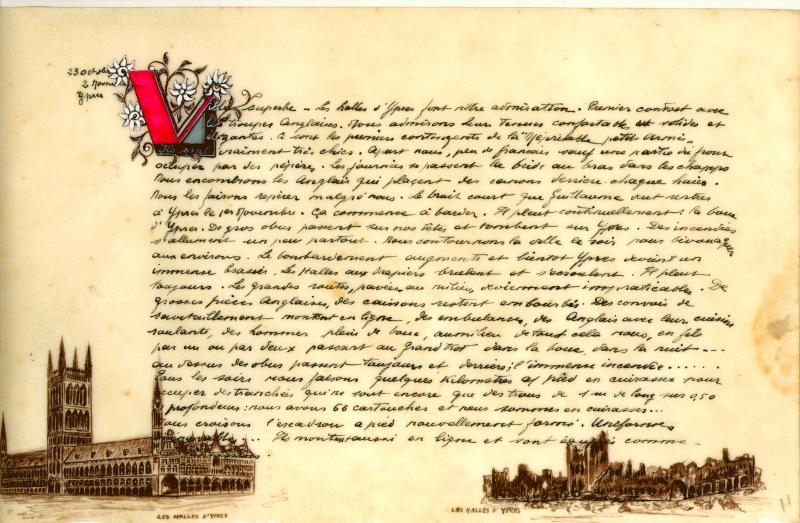 23 Octobre
2 Novembre
Ypres
Ville superbe _ Les halles d'Ypres font notre admiration. Premier contact avec
les troupes Anglaises. Nous admirons leur tenues confortables et solides et
élégantes. Ce sont les premiers contingents de la "Méprisable petite armée"
Ils sont vraiment très chics. A part nous, peu de français sauf une partie du front
occuper par des pépères. Les journées se passent la bride au bras dans les champs
Nous encombrons les Anglais qui placent des canons derrière chaque haie.
Nous les faisons repérer malgré nous. Le bruit court que Guillaume veut rentrer
à Ypres le 1er Novembre. Ça commence à barder. Il pleut continuellement: la boue
d'Ypres. De gros obus passent sur nos têtes et tombent sur Ypres. Des incendies
s'allument un peu partout. Nous contournons la ville le soir pour bivouaquer
aux environs. Le bombardement augmente et bientôt Ypres devient un
immense brasier. Les Halles aux drapiers brulent et s'écroulent. Il pleut
toujours. Les grandes routes, pavées au milieu, deviennent impraticables. De
grosses pièces Anglaises, des caissons restent embourbés. Des convois de
ravitaillement montent en ligne, des ambulances, des Anglais avec leur cuisine
roulante, des hommes pleins de boue, au milieu de tout cela nous, en file
par un ou par deux passant au grand trot dans la boue, dans la nuit ....
au dessus des obus passent toujours et derrière; l'immense incendie.......
Tous les soirs nous faisons quelques kilomètres à pied en cuirasses pour
occuper des tranchées qui ne sont encore que des trous de 1m de long sur 0,50
profondeur: nous avons 66 cartouches et nous sommes en cuirasses...
Nous croisons l'escadron à pied nouvellement formé. Uniformes
... Ils montent aussi en ligne et sont équipés comme _
LES HALLES D'YPRES
LES HALLES D'YPRES